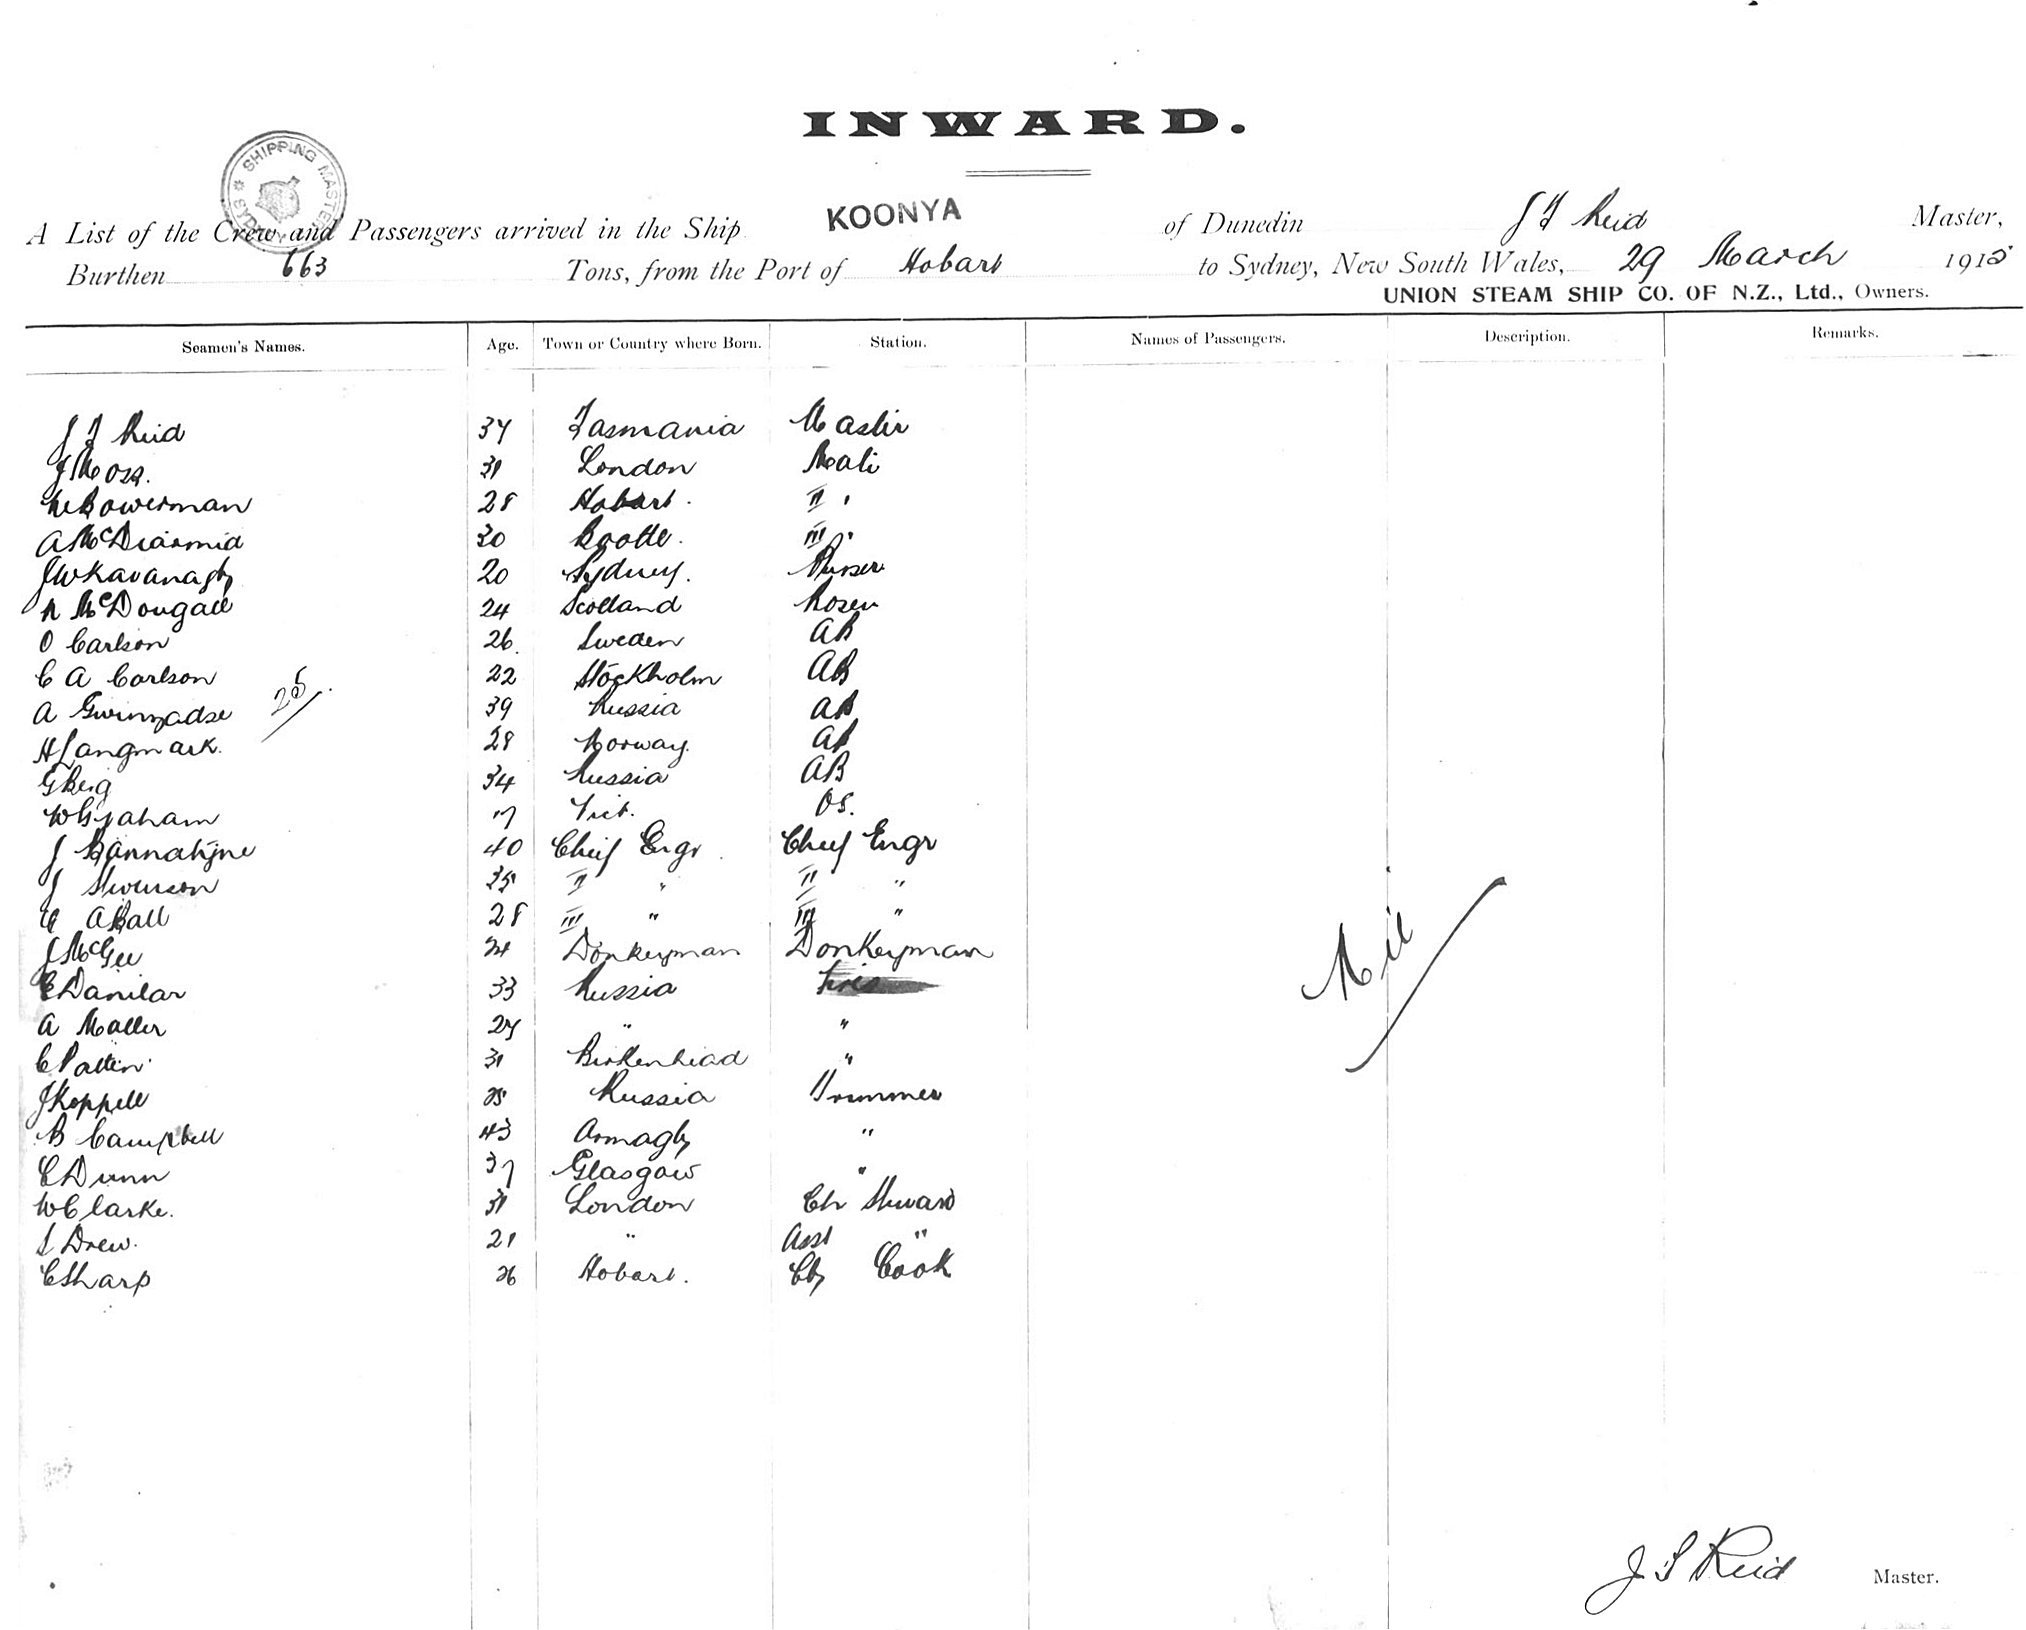 INWARD.
SHIPPING MASTER SYDNEY
A List of the Crew and Passengers arrived in the Ship KOONYA of Dunedin J F Reid Master,
Burthen 663 Tons, from the Port of Hobart to Sydney, New South Wales, 29 March 1915
UNION STEAM SHIP CO. OF N.Z., Ltd., Owners.
Seamen's Names. Age. Town or Country where Born. Station. Names of Passengers. Description. Remarks.
J F Reid 37 Tasmania Master
J Moss. 31 London Mate
Bowerman 28 Hobart. II "
A McDiarmid 30 Bootle. III "
J W Kavanagh 20 Sydney. Purser
N McDougall 24 Scotland Bosen
O Carlson 26 Sweden AB
C A Carlson 22 Stockholm AB
25
A 39 Russia AB
H Langmark. 28 Norway. AB
G Berg 34 Russia AB
W Graham 17 Vict. OS.
J Bannatyne 40 Chief Engr. Chief Engr
J 35 II " II "
C A Ball 28 III " III "
J McGee 24 Donkeyman Donkeyman
E Danilar 33 Russia Fire
A Maller 27 " "
C Patten 31 Birkenhead "
J Koppell 25 Russia Trimmer
B Campbell 43 Armagh "
C Dunn 37 Glasgow "
W Clarke. 31 London Ch Steward
S Drew. 21 " Asst "
C Sharp 26 Hobart. Ch Cook
Nil
J F Reid Master.